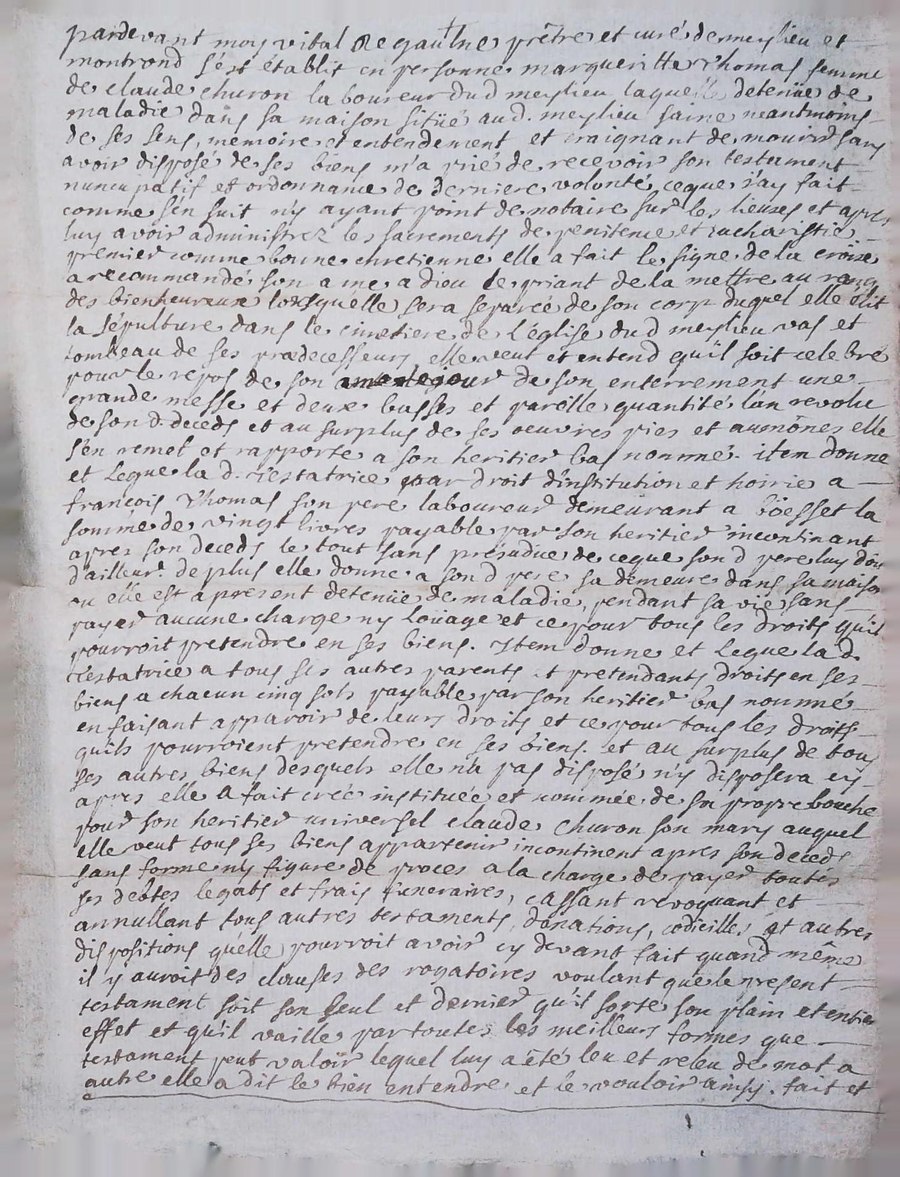 pardevant moy vital degaulne prêtre et curé demeylieu et
montrond s'est établit en personne margueritte Thomas femme
de claude churon laboureur dud meylieu laquelle detenüe de
maladie dans sa maison sitüe aud. meylieu saine neantmoins
de ses sens, memoire et entendement et craignant de mourir sans
avoir disposé de ses biens m'a prié de recevoir son testament
nuncupatif et ordonnance de derniere volonté, ceque j'ay fait
comme s'en suit n'y ayant point de notaire sur les lieux et apres
luy avoir administrez les sacrements de penitence et eucharistie
premier comme bonne chretienne elle a fait le signe de la croix
a recommandé son ame a dieu le priant de la mettre au rang
des bienheureux lorsquelle sera separée de son corp duquel elle élit
la sépulture dans le cimetiere de l'église dud meylieu vas et
tombeau de ses predecesseurs, elle veut et entend qu'il soit celebré
pour le repos de son jour de son enterrement une
grande messe et deux basses et pareille quantité l'an revolu
de son d. deceds et au surplus de ses oeuvres pies et aumônes elle
s'en remet et rapporte a son heritier bas nommé. item donne
et legue la d. Testatrice par droit d'institution et hoirie a
françois Thomas son pere laboureur demeurant a Boësset la
somme de vingt livres payable par son heritier incontinant
apres son deceds le tout sans prejudice de ceque son d pere luy doit
d'ailleur. de plus elle donne a son d pere sa demeure dans sa maison
ou elle est apresent detenüe de maladie, pendant sa vie sans
payer aucune charge ny loüage et ce pour tous les droits qu'il
pourroit pretendre en ses biens. Item donne et legue la d.
Testatrice a tous ses autres parents et pretendants droits en ses
biens a chacun cinq sols payable par son heritier bas nommé
en faisant apparoir de leurs droits et ce pour tous les droits
qu'ils pourroient pretendre en ses biens. et au surplus de tous
ses autres biens desquels elle n'a pas disposé n'y disposera cy
apres elle a fait creé instituée et nommée de sa propre bouche
pour son heritier universel claude churon son mary auquel
elle veut tous ses biens appartenir incontinent apres son deceds
sans forme n'y figure de proces a la charge de payer toutes
ses debtes legats et frais funeraires, cassant revoquant et
annullant tous autres testaments, donations, codicilles et autres
dispositions qu'elle pourroit avoir cy devant fait quand même
il y auroit des clauses des rogatoires voulant que le present
testament soit son seul et dernier qu'il sorte son plain et entier
effet et qu'il vaille par toutes les meilleurs formes que
testament peut valoir lequel luy a été leu et releu de mot a
autre elle a dit le bien entendre et le vouloir ainsy. fait et